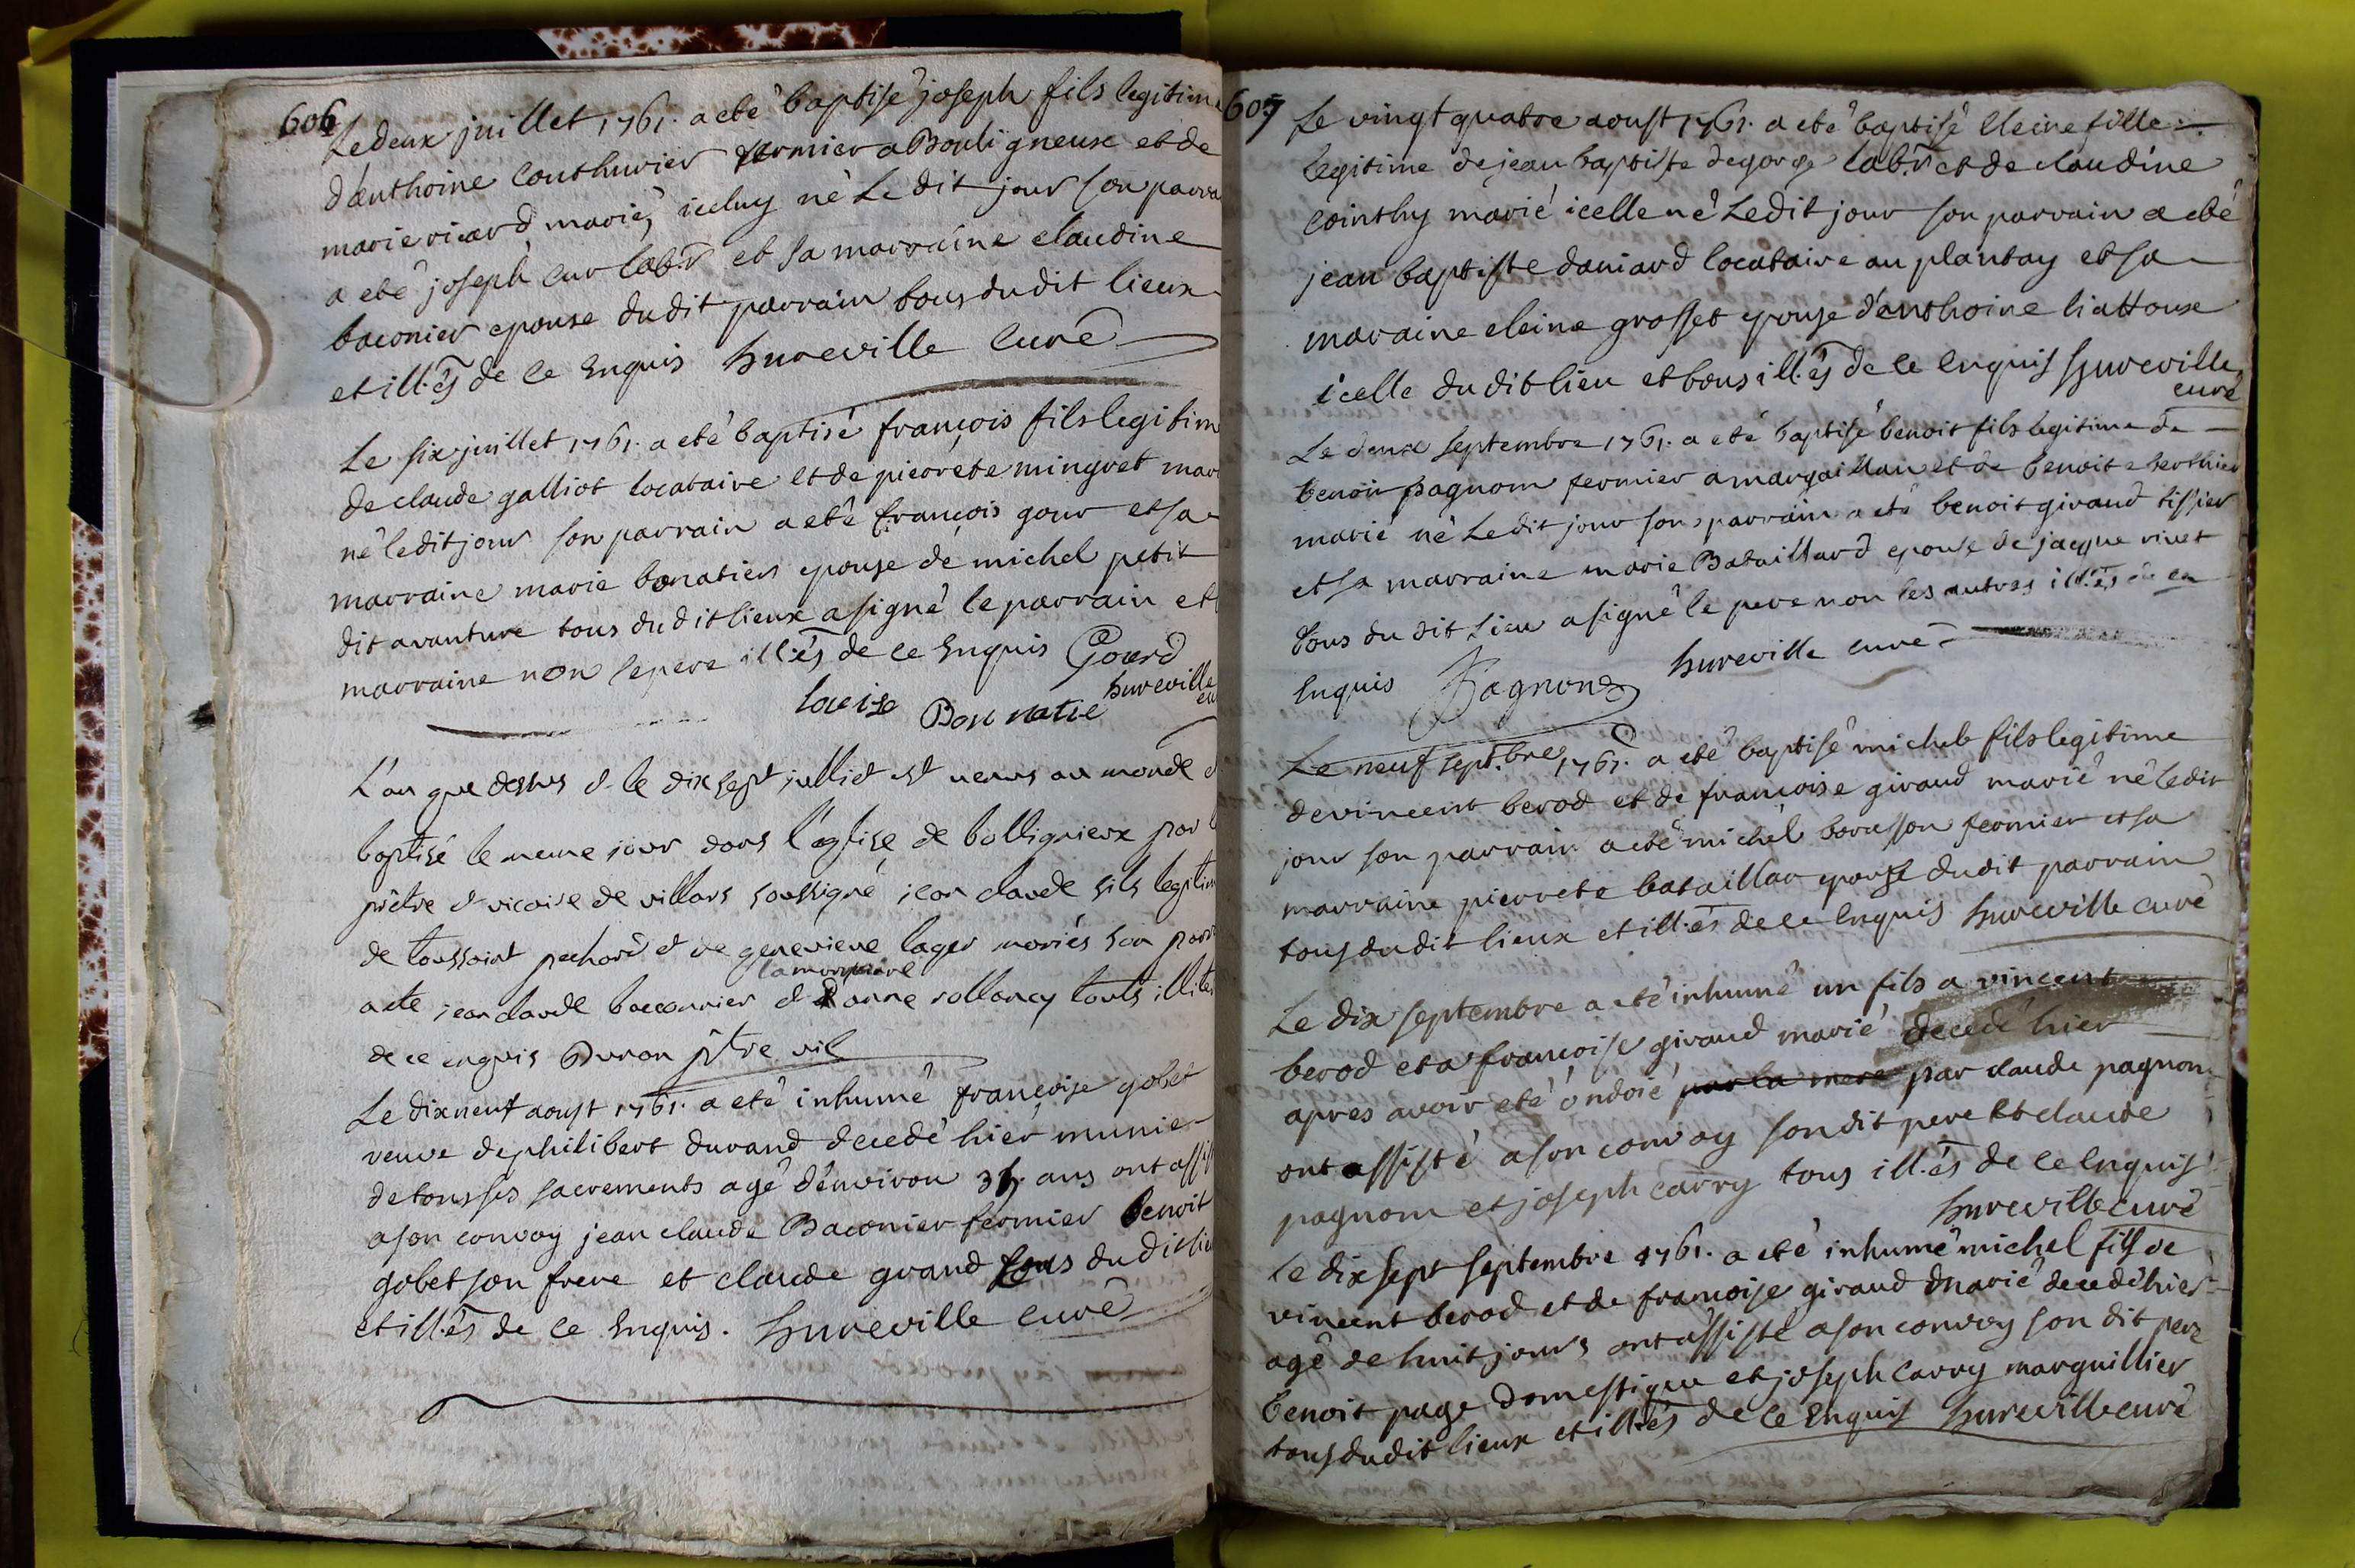 606
Le deux juillet 1761. a eté baptisé joseph fils legitim
d'enthoine Couthurier fermier a Bouligneux et de
marie ricard marié, iceluy né Le dit jour son parra
a eté joseph Cur lab.r et sa marraine claudine
baconier epouse du dit parrain tous du dit lieux
et ill.és de ce Enquis hureville Curé
Le six juillet 1761. a eté baptisé françois fils legitim
de claude galliot locataire et de pierrete mingret mar
né le dit jour son parrain a eté françois gour et sa
marraine marie bonatier epouse de michel petit
dit avanture tous du dit lieux a signé le parrain et
marraine non le pere ill.és de ce Enquis Gourd
Bon natie hureville
L'an que dessus & le dix sept julliet est venus au monde &
baptisé le meme jour dans l'eglise de bollignieux par
prêtre & vicaire de villars soussigné jean claude fils legitim
de toussaint pechard & de genevieve lager mariés son parr
a ete jean claude bacconnier & la marraine anne rollancy touts illite
de ce enquis Duron ptre vic
Le dix neuf aoust 1761. a eté inhumé françoise gobet
veuve de philibert durand decedé hier munie
de tous ses sacrements agé d'environ ans ont assi
a son convoy jean claude Baconier fermier benoit
gobet son frere et claude grand tous du dit lieu
et ill.és de ce Enquis. hureville curé
607
Le vingt quatre aoust 1761. a eté baptisé cleine fille
legitime de jean baptiste degorge lab.r et de claudine
Cointhy marié icelle né Le dit jour son parrain a eté
jean baptiste daniard locataire au plantay et sa
maraine cleine grosset epouse d'enthoine liattoux
icelle du dit lieu et tous ill.és de ce Enquis hureville
curé
Le deux septembre 1761. a eté baptisé benoit fils legitime de
benoit pagnom fermier a margaillan et de benoite berthier
marié né Le dit jour son parrain a eté benoit giraud tissier
et sa marraine marie Bataillard epouse de jacque rivet
tous du dit Lieu a signé le pere non les autres ill.és de ce
Enquis Pagnon hureville curé
Le neuf sept.bre 1761. a eté baptisé michel fils legitime
de vincent berod et de francoise giraud marié né le dit
jour son parrain a eté michel borasson fermier et sa
marraine pierrete bataillar epouse du dit parrain
tous du dit lieux et ill.és de ce Enquis hureville curé
Le dix septembre a eté inhumé un fils a vincent
berod et a francoise giraud marié decedé hier
apres avoir eté ondoié par la mere par claude pagnom
ont assisté a son convoy son dit pere et claude
pagnom et joseph Carry tous ill.és de ce Enquis
hureville curé
Le dix sept septembre 1761. a eté inhumé michel fils de
vincent berod et de francoise giraud marié decedé hier
agé de huit jours ont assisté a son convoy son dit pere
benoit page domestique et joseph Carry marguillier
tous du dit lieux et ill.és de ce Enquis hureville curé